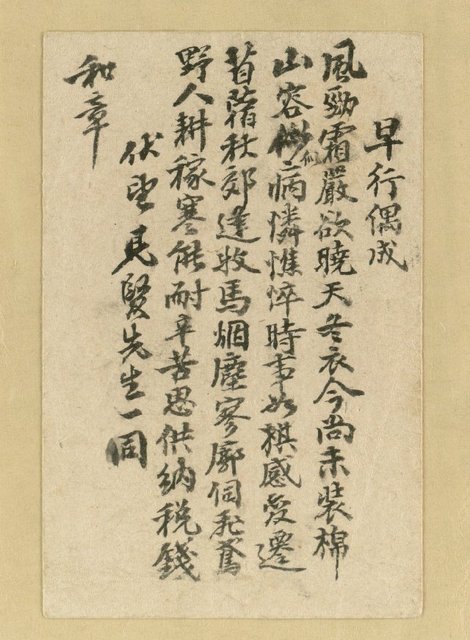 早行偶成
風勁霜嚴欲曉天冬衣今尚未裝棉
山容似病憐憔悴時事如棋感变遷
苜蓿秋郊逢牧馬烟塵寥廓伺飛鳶
野人耕稼寒能耐辛苦思供納税錢
伏望見賢先生一同
和章